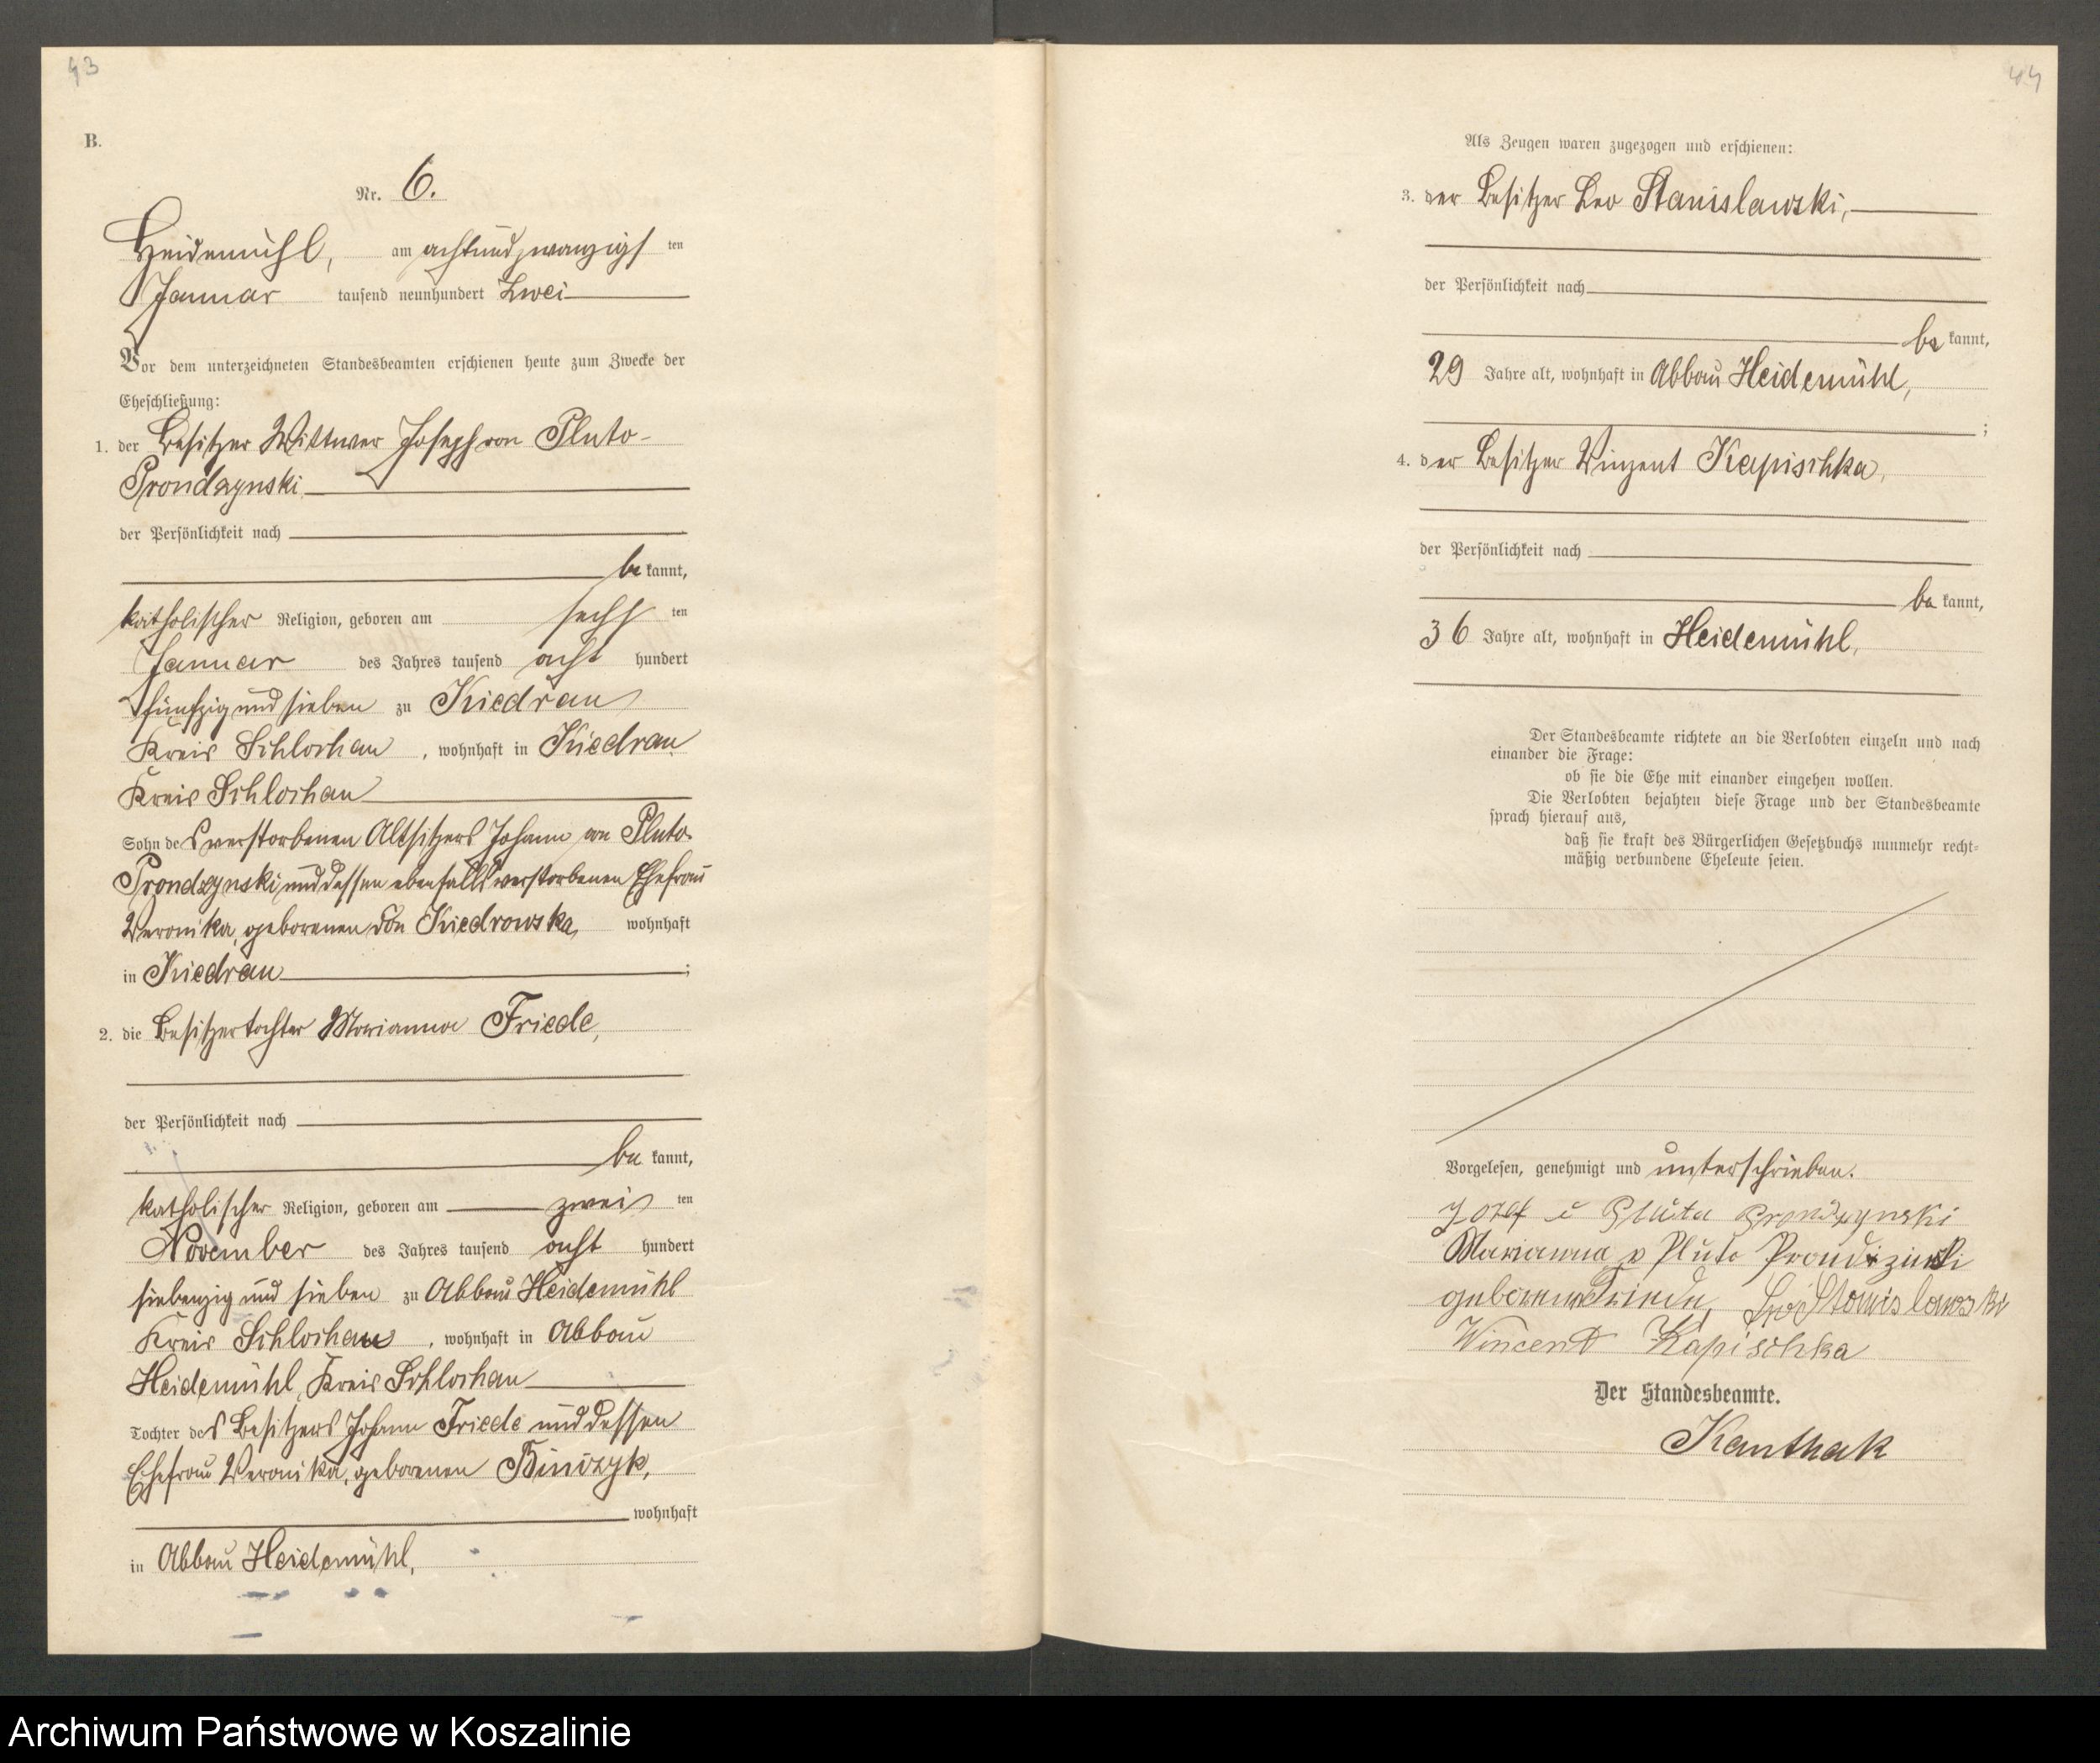 43
B.
Nr. 6.
Heidemühl, am achtundzwanzigsten
Januar tausend neunhundert zwei
Vor dem unterzeichneten Standesbeamten erschienen heute zum Zwecke der
Eheschließung:
1. der Besitzer Wittwer Joseph von Pluto-
Prondzynski
der Persönlichkeit nach
be kannt,
katholischer Religion, geboren am sechsten
Januar des Jahres tausend acht hundert
fünfzig und sieben zu Kiedrau
Kreis Schlochau, wohnhaft in Kiedrau
Kreis Schlochau
Sohn des verstorbenen Altsitzers Johann von Pluto-
Prondzynski und dessen ebenfalls verstorbenen Ehefrau
Veronika, geborenen von Kiedrowska, wohnhaft
in Kiedrau ;
2. die Besitzertochter Marianna Friede,
der Persönlichkeit nach
be kannt,
katholischer Religion, geboren am zweiten
November des Jahres tausend acht hundert
siebenzig und sieben zu Abbau Heidemühl
Kreis Schlochau, wohnhaft in Abbau
Heidemühl, Kreis Schlochau
Tochter des Besitzers Johann Friede und dessen
Ehefrau Veronika, geborenen Binczyk,
wohnhaft
in Abbau Heidemühl,
44
Als Zeugen waren zugezogen und erschienen:
3. der Besitzer Leo Stanislawski,
der Persönlichkeit nach
be kannt,
29 Jahre alt, wohnhaft in Abbau Heidemühl,
;
4. der Besitzer Vinzent Kapischka,
der Persönlichkeit nach
be kannt,
36 Jahre alt, wohnhaft in Heidemühl,
Der Standesbeamte richtete an die Verlobten einzeln und nach
einander die Frage:
ob sie die Ehe mit einander eingehen wollen.
Die Verlobten bejahten diese Frage und der Standesbeamte
sprach hierauf aus,
daß sie kraft des Bürgerlichen Gesetzbuchs nunmehr recht-
mäßig verbundene Eheleute seien.
Vorgelesen, genehmigt und unterschrieben.
Jozef v Pluta Prondzynski
Marianna v Pluto Prondzinski
geborene Friede, Leo Stanislawski
Wincent Kapischka
Der Standesbeamte.
Kanthak
Archiwum Państwowe w Koszalinie